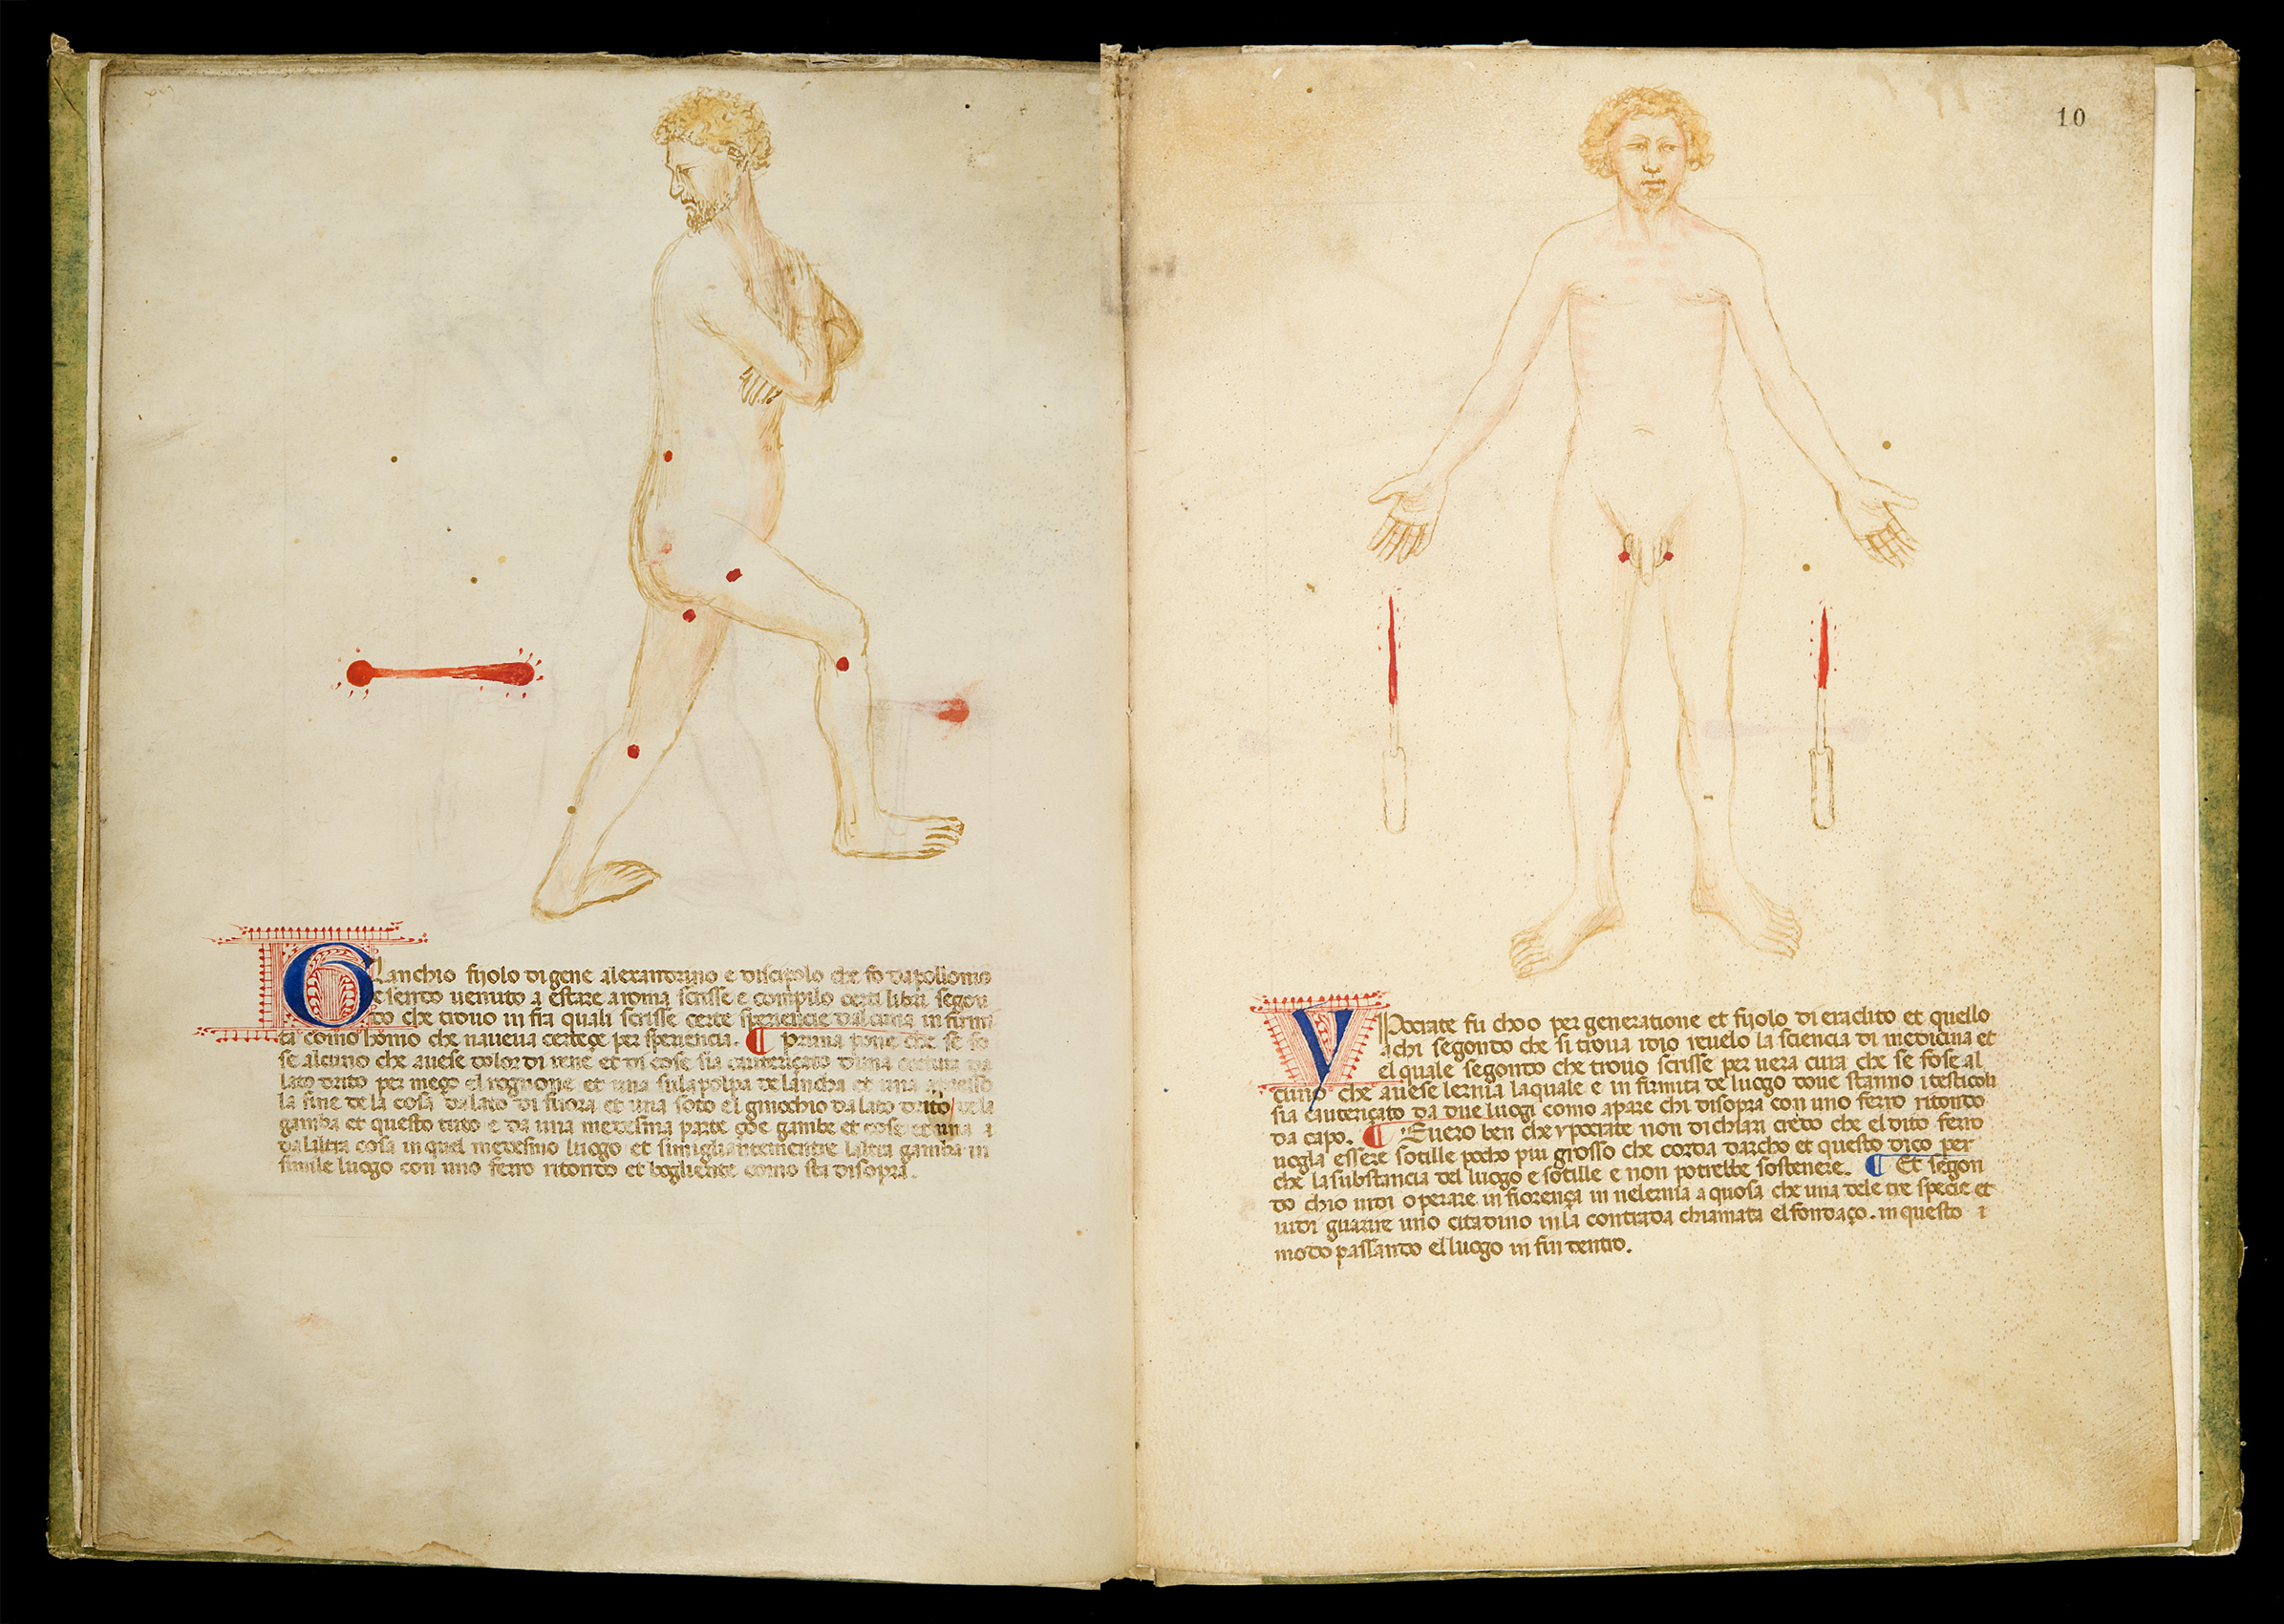 Glanchio fijolo di gene alexandrino e discipolo che fo dapollonio
e sendo uenuto a estare a roma scrisse e compilo certi libri segon
do che trouo in fra quali scrisse certe speriencie dalcuna infirmi
ta como homo che naueua certeçe per speriencia. ¶ Prima pone che se fo
se alcuno che auese dolor di rene et di cose sia cauteriçato duna da
lato drito per meço el rognone et una su la polpa de lancha et una
la fine de la cosa da lato di fuora et una soto el ginochio da lato drito / de la
gamba et questo tuto e da una medesima parte çoe gambe et cose et una a
da laltra cosa in quel medesimo luogo et simigliantemente laltra gamba in
simile luogo con uno ferro ritondo et bogliente como sta disopra.
10
Vpocrate fu choo per generatione et fijolo di eraclito et quello
a chi segondo che si troua idio reuelo la sciencia di medicina et
el quale segondo che trouo scrisse per uera cura che se fose al
cuno che auese lernia laquale e infirmita de luogo doue stanno i testicoli
sia cauteriçato da due luogi como apare chi disopra con uno ferro ritondo
da capo. ¶ Euero ben che ypocrate non dichiari credo che el dito ferro
uogla essere sotille pocho piu grosso che corda darcho et questo dico per
che la substancia del luogo e sotille e non potrebbe sostenere. ¶ Et segon
do chio uidi operare in fiorença in nelernia aquosa che una dele tre specie et
uidi guarire uno citadino in la contrada chiamata el fondaço. in questo
modo passando el luogo in fin dentro.